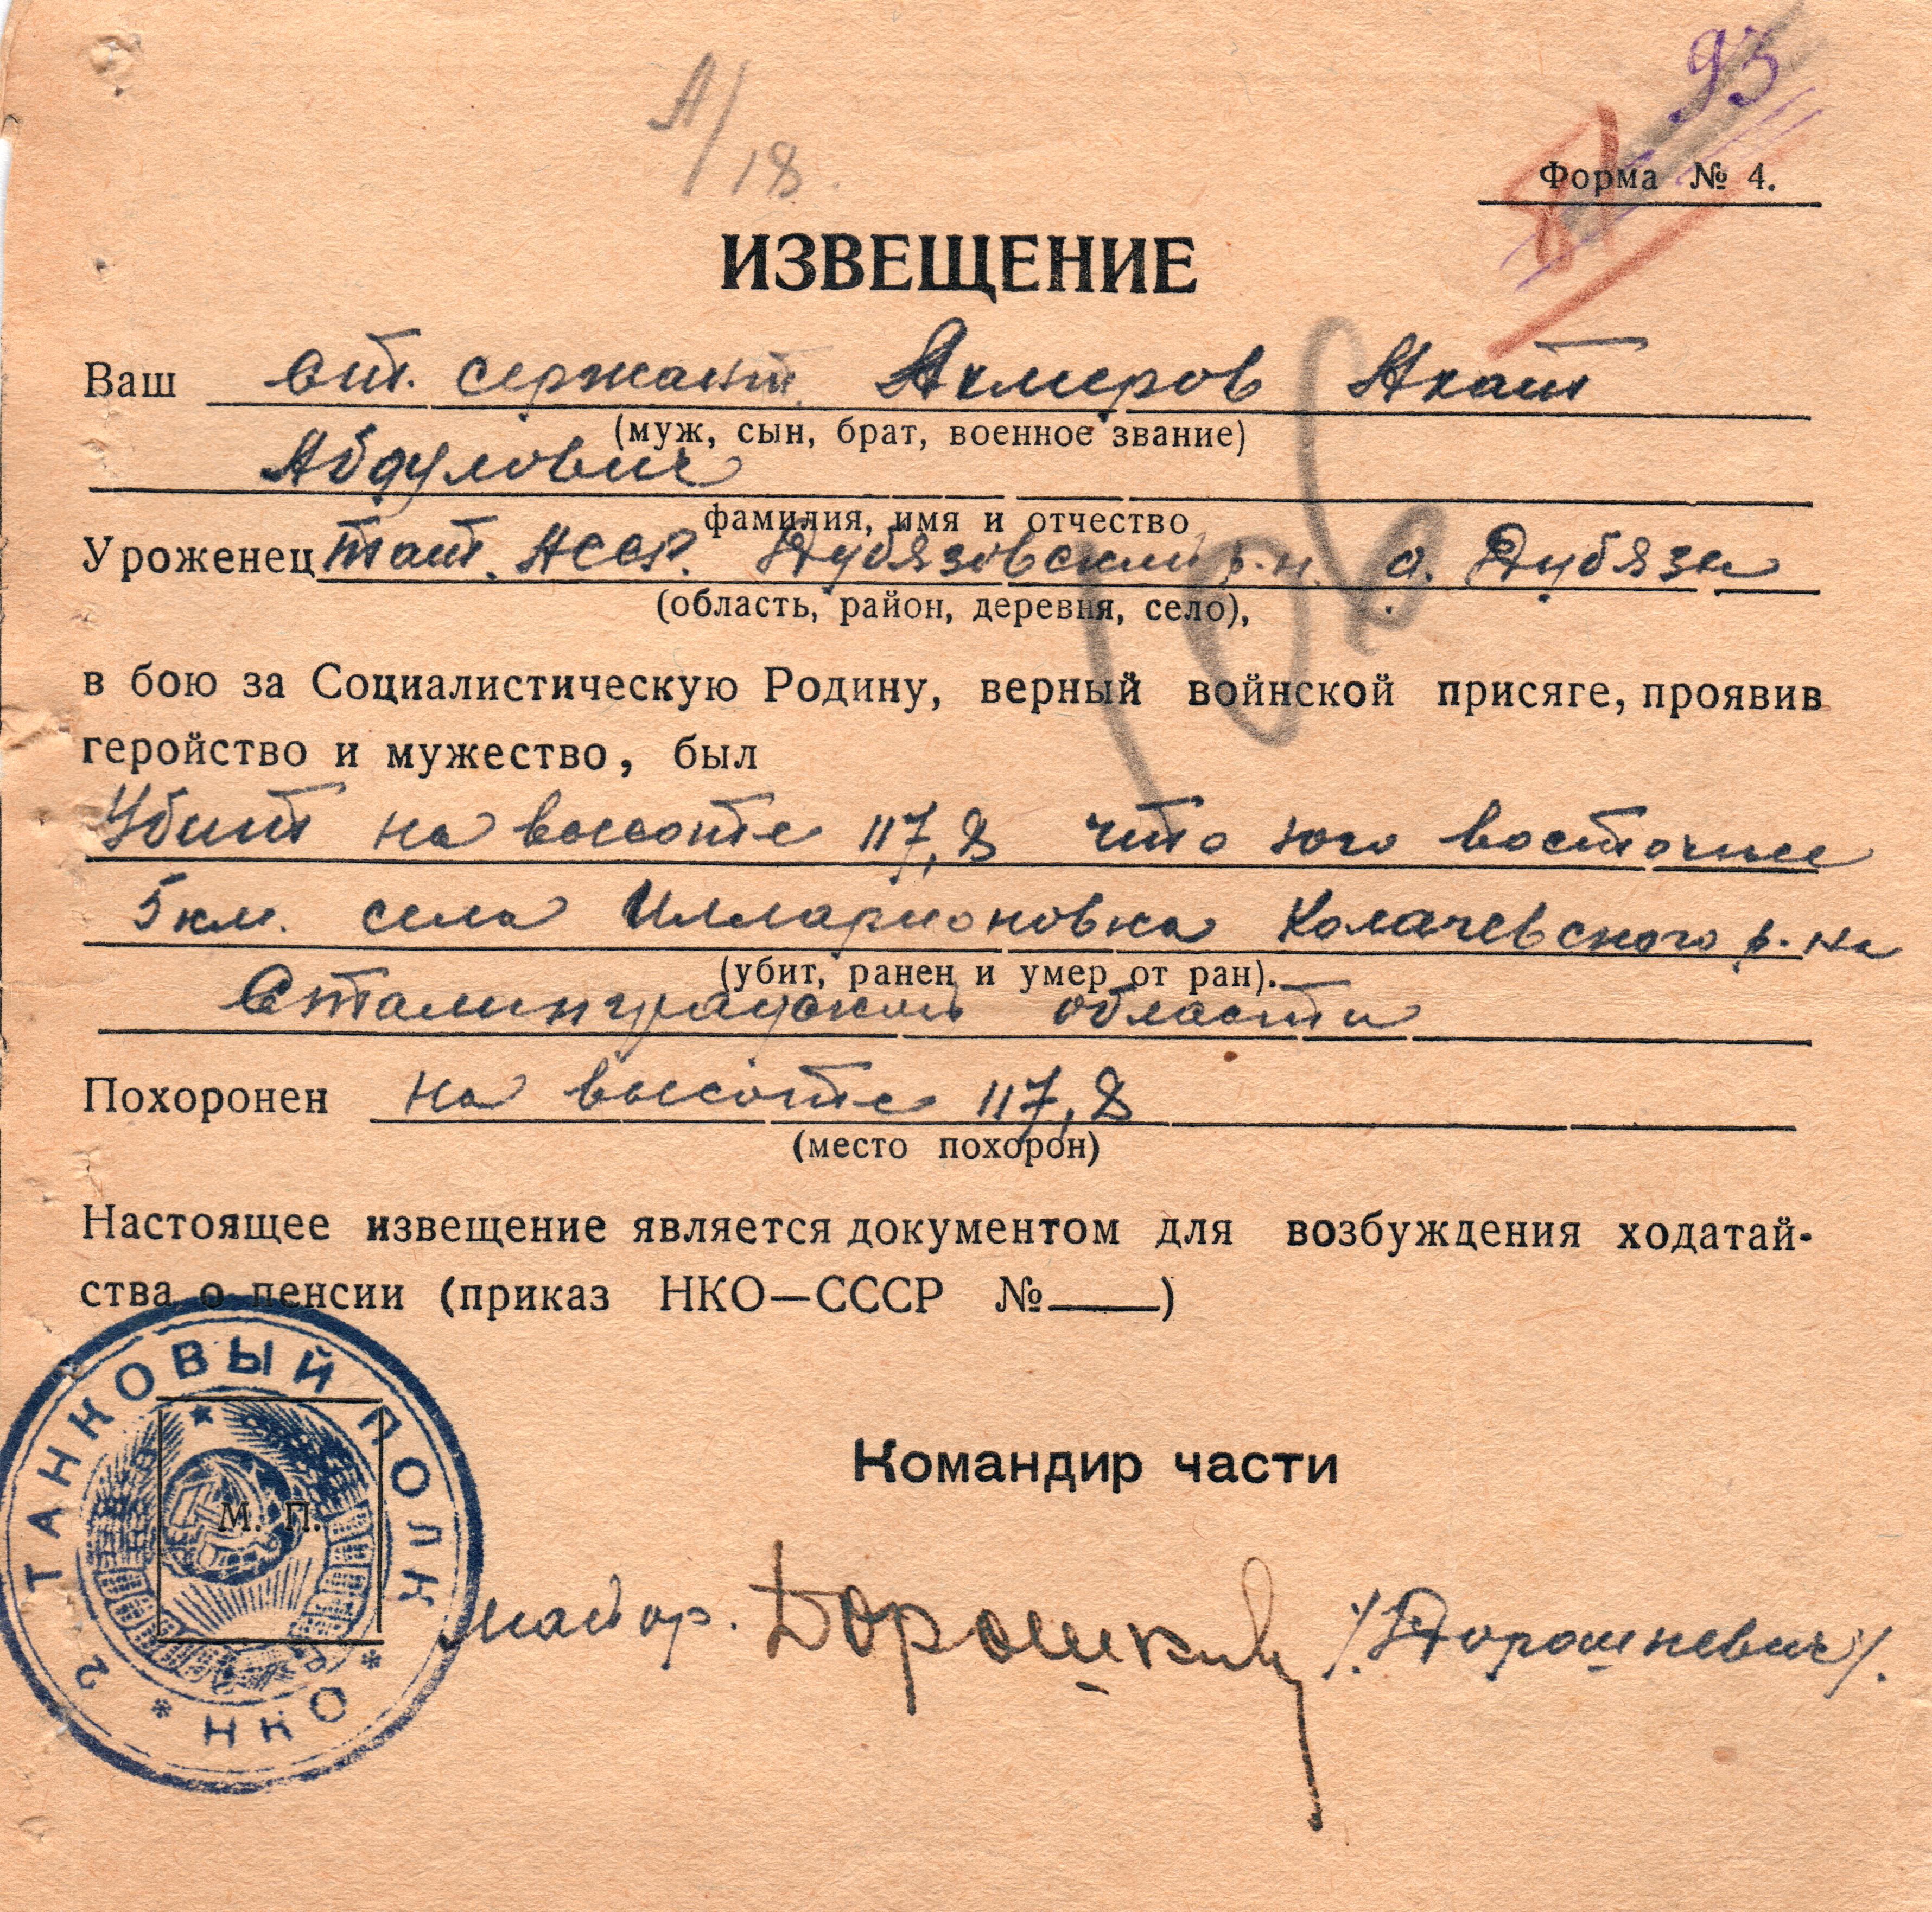 93
А/18.
81
Форма № 4.
ИЗВЕЩЕНИЕ
Ваш ст. сержант Ахмеров Ахат
(муж, сын, брат, военное звание)
Абдулович
фамилия, имя и отчество
Уроженец Тат. АССР. Дубязовский р.н. с. Дубязи
(область, район, деревня, село),
106
в бою за Социалистическую Родину, верный войнской присяге, проявив
геройство и мужество, был
Убит на высоте 117,8 что юго восточнее
5 км. села Илларионовка Калачевского р.на
(убит, ранен и умер от ран).
Сталинградской области
Похоронен на высоте 117,8
(место похорон)
Настоящее извещение является документом для возбуждения ходатай-
ства о пенсии (приказ НКО—СССР №___)
Командир части
2 ТАНКОВЫЙ ПОЛК * НКО *
М. П.
майор. Дорошкевич /Дорошкевич/.